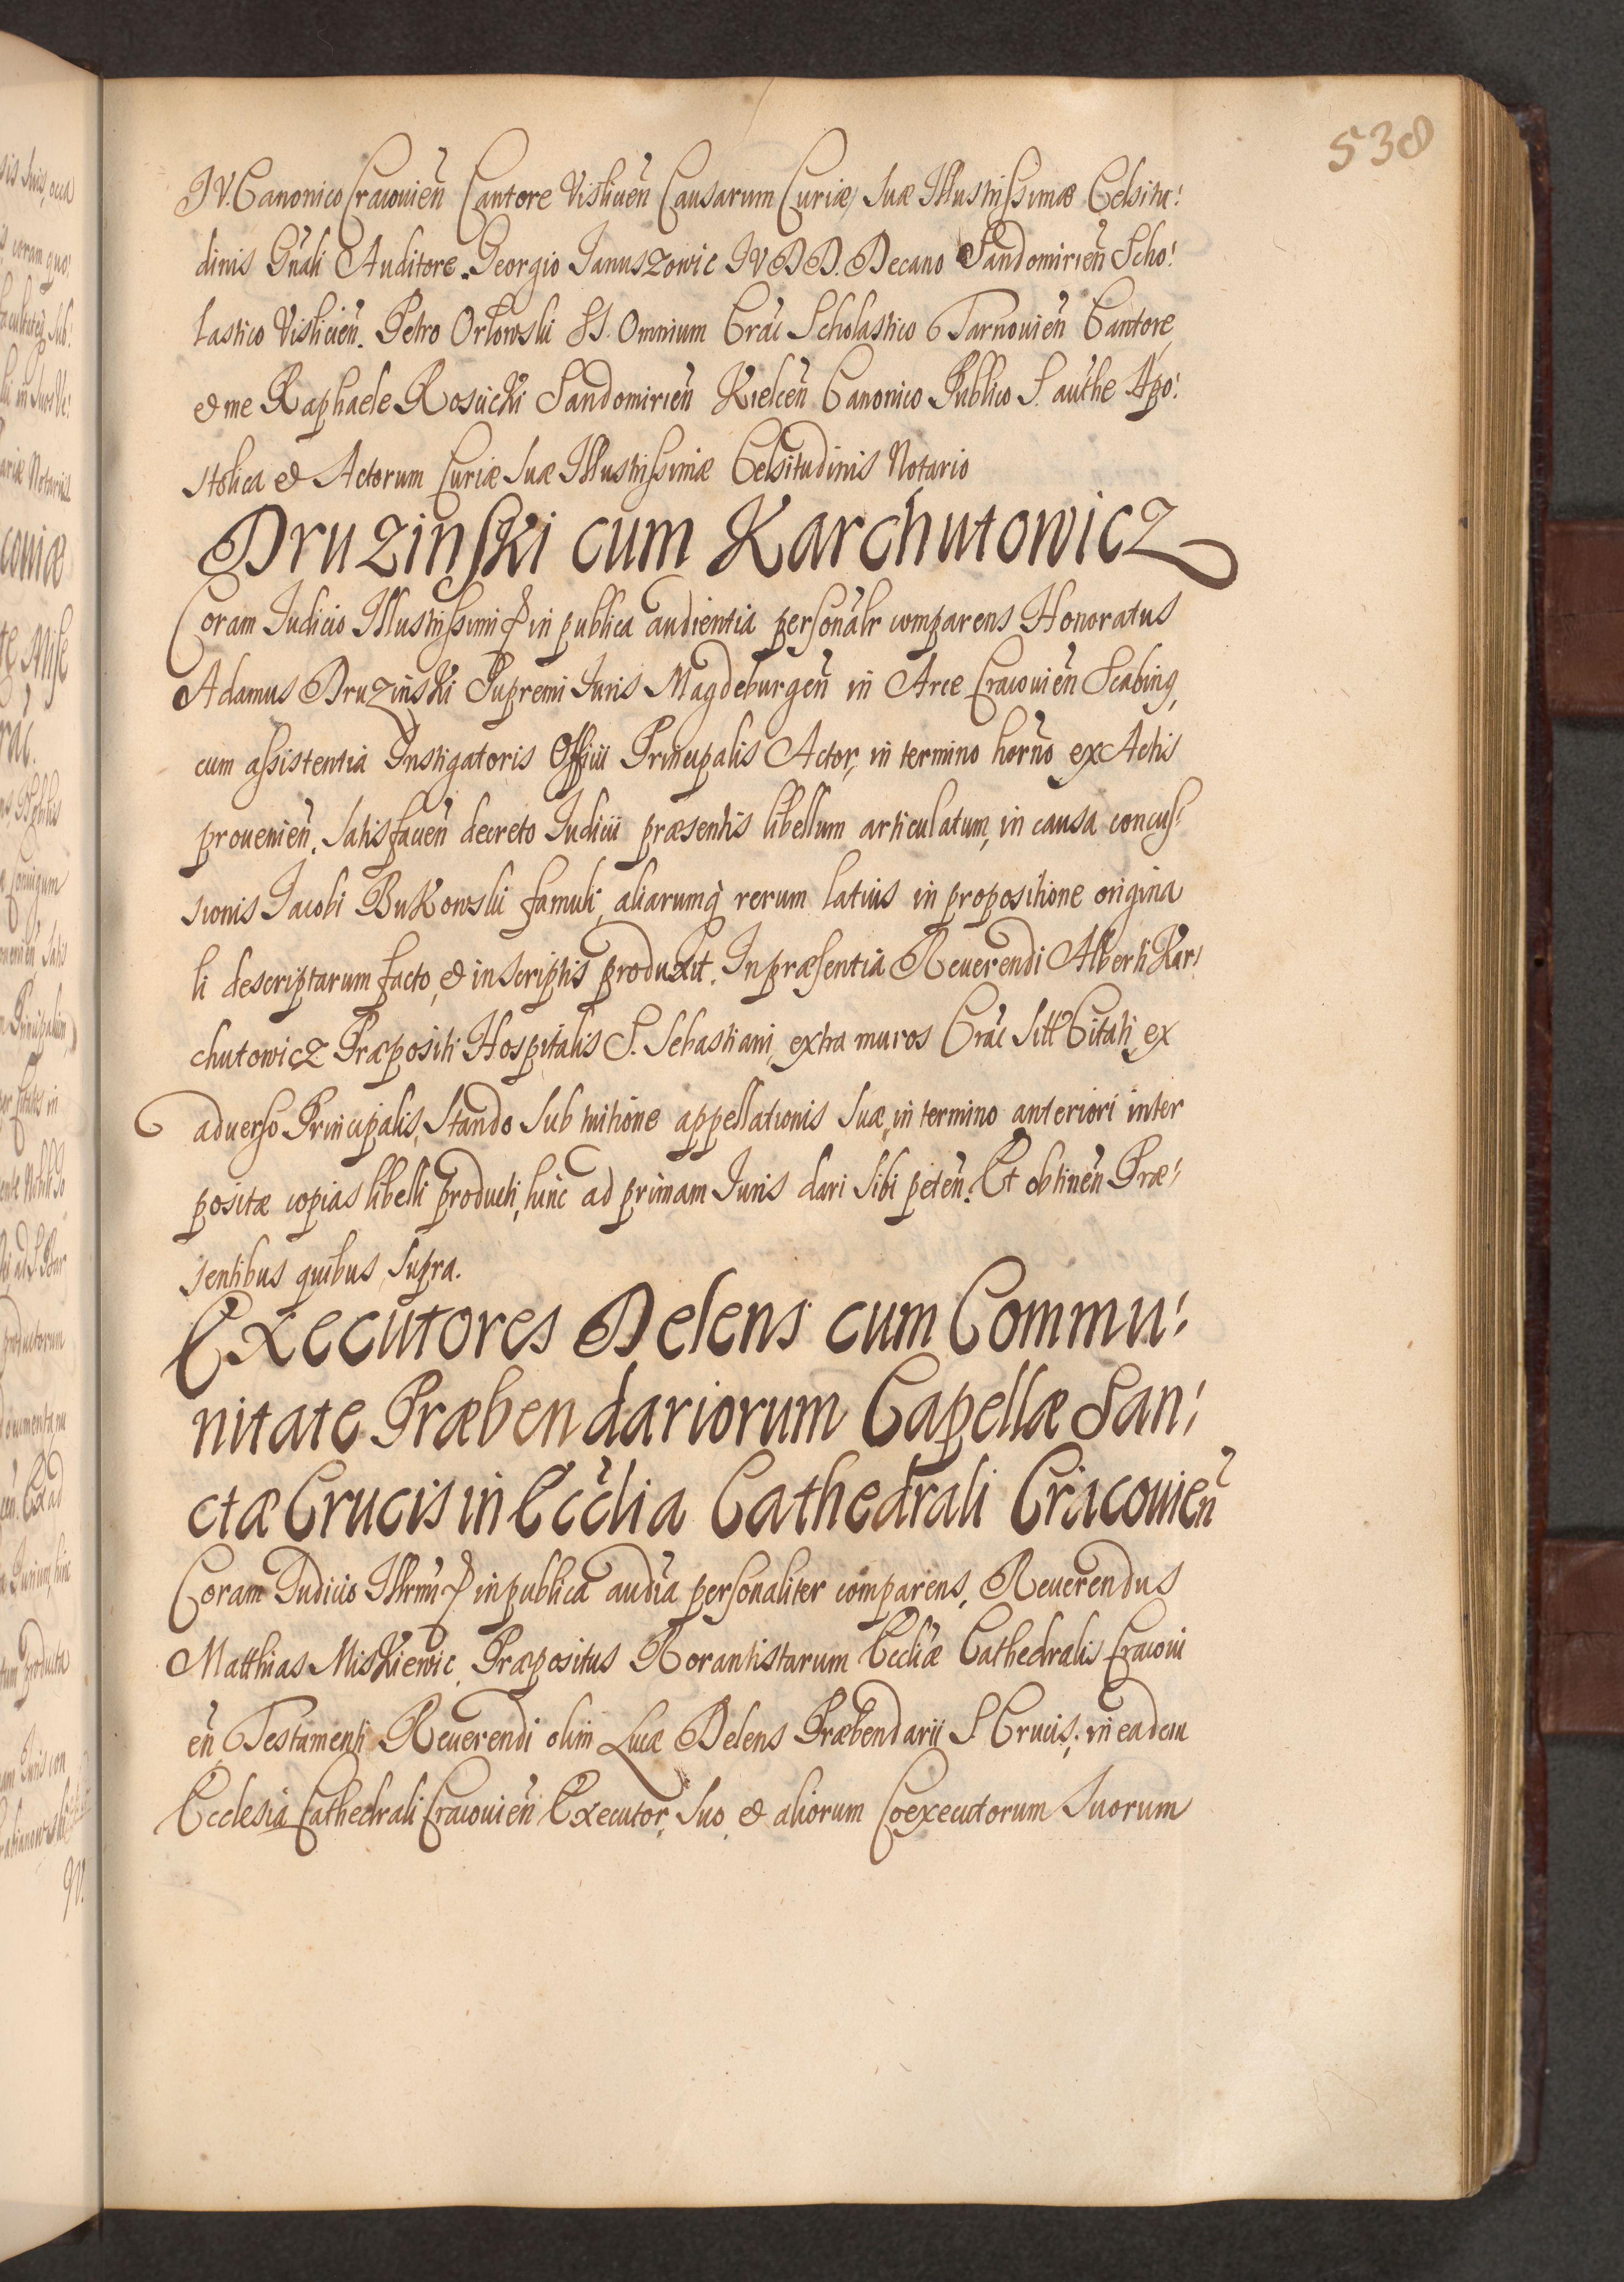 538
JV. Canonico Cracouień Cantore Visliceń Causarum Curiæ Suæ Illustrissimæ Celsitu:
dinis Gńali Auditore. Georgio Januszowic JVDD. Decano Sandomirień Scho:
lastico Vislicień. Petro Orłowski SS. Omnium Crác Scholastico Tarnouień Cantore,
et me Raphaele Rosiicki Sandomirień Kielceń Canonico Publico S. authe Apo:
stolica et Actorum Curiæ Suæ Illustrissimæ Celsitudinis Notario
Druzinski cum Karchutowicz
Coram Judicio Illustrissimi et in publica audientia personálr comparens Honoratus
Adamus Druzinski Supremi Juris Magdeburgeń in Arce Cracouień Scabinus,
cum assistentia Instigatoris Officii Principalis Actor, in termino horńo ex Actis
prouenień. Satisfacień decreto Judicii præsentis libellum articulatum, in causa concus:
sionis Jacobi Bukowski famuli, aliarumq rerum latius in propositione origina
li descriptarum facto, et in scriptis produxit. In præsentia Reuerendi Alberti Kar:
chutowicz Præpositi Hospitalis S. Sebastiani, extra muros Crác Sitt Citati, ex
aduerso Principalis, Stando Sub mitione appellationis Suæ, in termino anteriori inter
positæ copias libelli producti, hinc ad primam Juris dari Sibi peteń. Et obtineń Præ:
sentibus quibus Supra.
Executores Delens cum Commu:
nitate Præbendariorum Capellæ San:
ctæ Crucis in Ecclia Cathedrali Cracouień
Coram Judicio Illrmi et in publica audia personaliter comparens, Reuerendus
Matthias Miskiewic Præpositus Rorantistarum Eccliæ Cathedralis Cracoui
eń Testamenti Reuerendi olim Lucæ Delens Præbendarii S. Crucis, in eadem
Ecclesia Cathedrali Cracouień Executor, Suo, et aliorum Coexecutorum Suorum